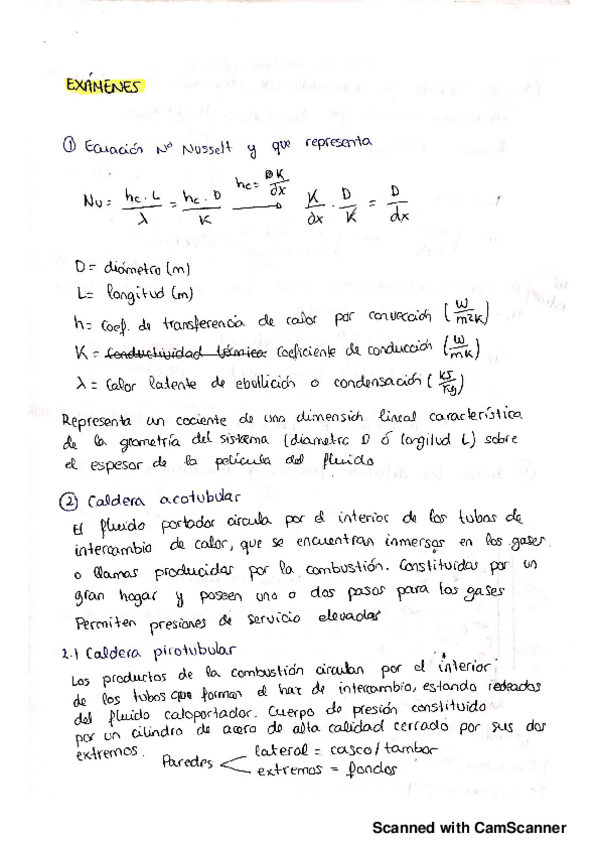 EXÁMENES
① Ecuación Nº Nusselt y que representa
Nu = hc · L / λ = hc · D / K → hc = K / ∂x → K / ∂x · D / K = D / dx
D = diámetro (m)
L = longitud (m)
h = coef. de transferencia de calor por convección (W / m²K)
K = conductividad térmica. coeficiente de conducción (W / mK)
λ = calor latente de ebullición o condensación (KJ / Kg)
Representa un cociente de una dimensión lineal característica
de la geometría del sistema (diametro D ó longitud L) sobre
el espesor de la película del fluido
② Caldera acotubular
El fluido portador circula por el interior de los tubos de
intercambio de calor, que se encuentran inmersos en los gases
o llamas producidas por la combustión. Constituidas por un
gran hogar y poseen uno o dos pasos para los gases
Permiten presiones de servicio elevadas
2.1 Caldera pirotubular
Los productos de la combustión circulan por el interior
de los tubos que forman el haz de intercambio, estando rodeados
del fluido caloportador. Cuerpo de presión constituido
por un cilindro de acero de alta calidad cerrado por sus dos
extremos.
Paredes < lateral = casco/tambor
extremos = fondos
Scanned with CamScanner